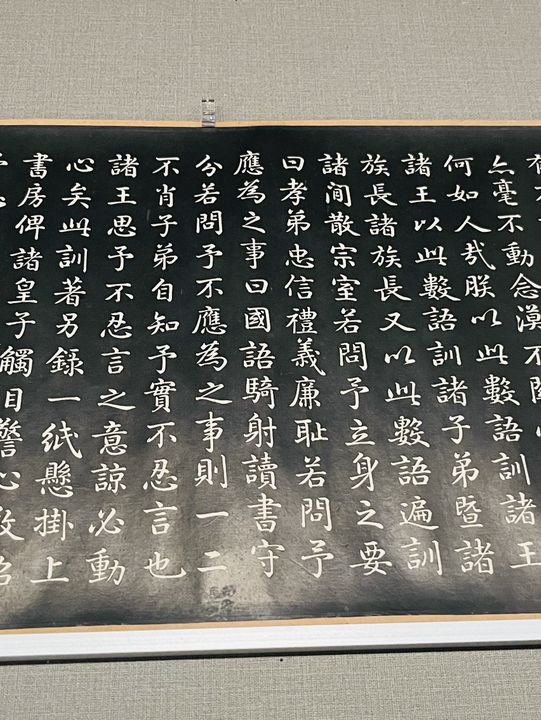 毫不動念漠不關
何如人哉朕以此數語訓諸王
諸王以此數語訓諸子弟暨諸
族長諸族長又以此數語遍訓
諸閒散宗室若問予立身之要
曰孝弟忠信禮義廉恥若問予
應為之事曰國語騎射讀書守
分若問予不應為之事則一二
不肖子弟自知予實不忍言也
諸王思予不忍言之意諒必動
心矣此訓著另錄一紙懸掛上
書房俾諸皇子觸目警心